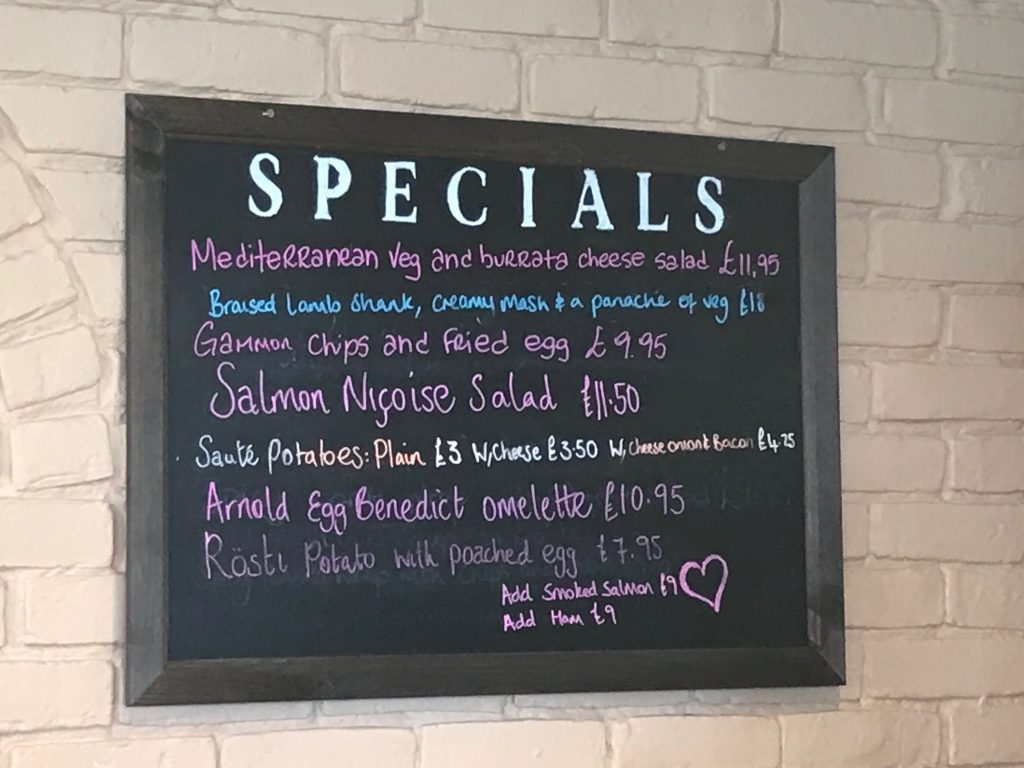 SPECIALS
Mediterranean Veg and burrata cheese salad £11,95
Braised Lamb Shank, creamy mash & a panache of veg £18
Gammon chips and fried egg £9.95
Salmon Niçoise Salad £11.50
Sauté Potatoes: Plain £3 W, Cheese £3.50 W, Cheese onion & Bacon £4.25
Arnold Egg Benedict omelette £10.95
Rösti Potato with poached egg £7.95
Add Smoked Salmon £9
Add Ham £9